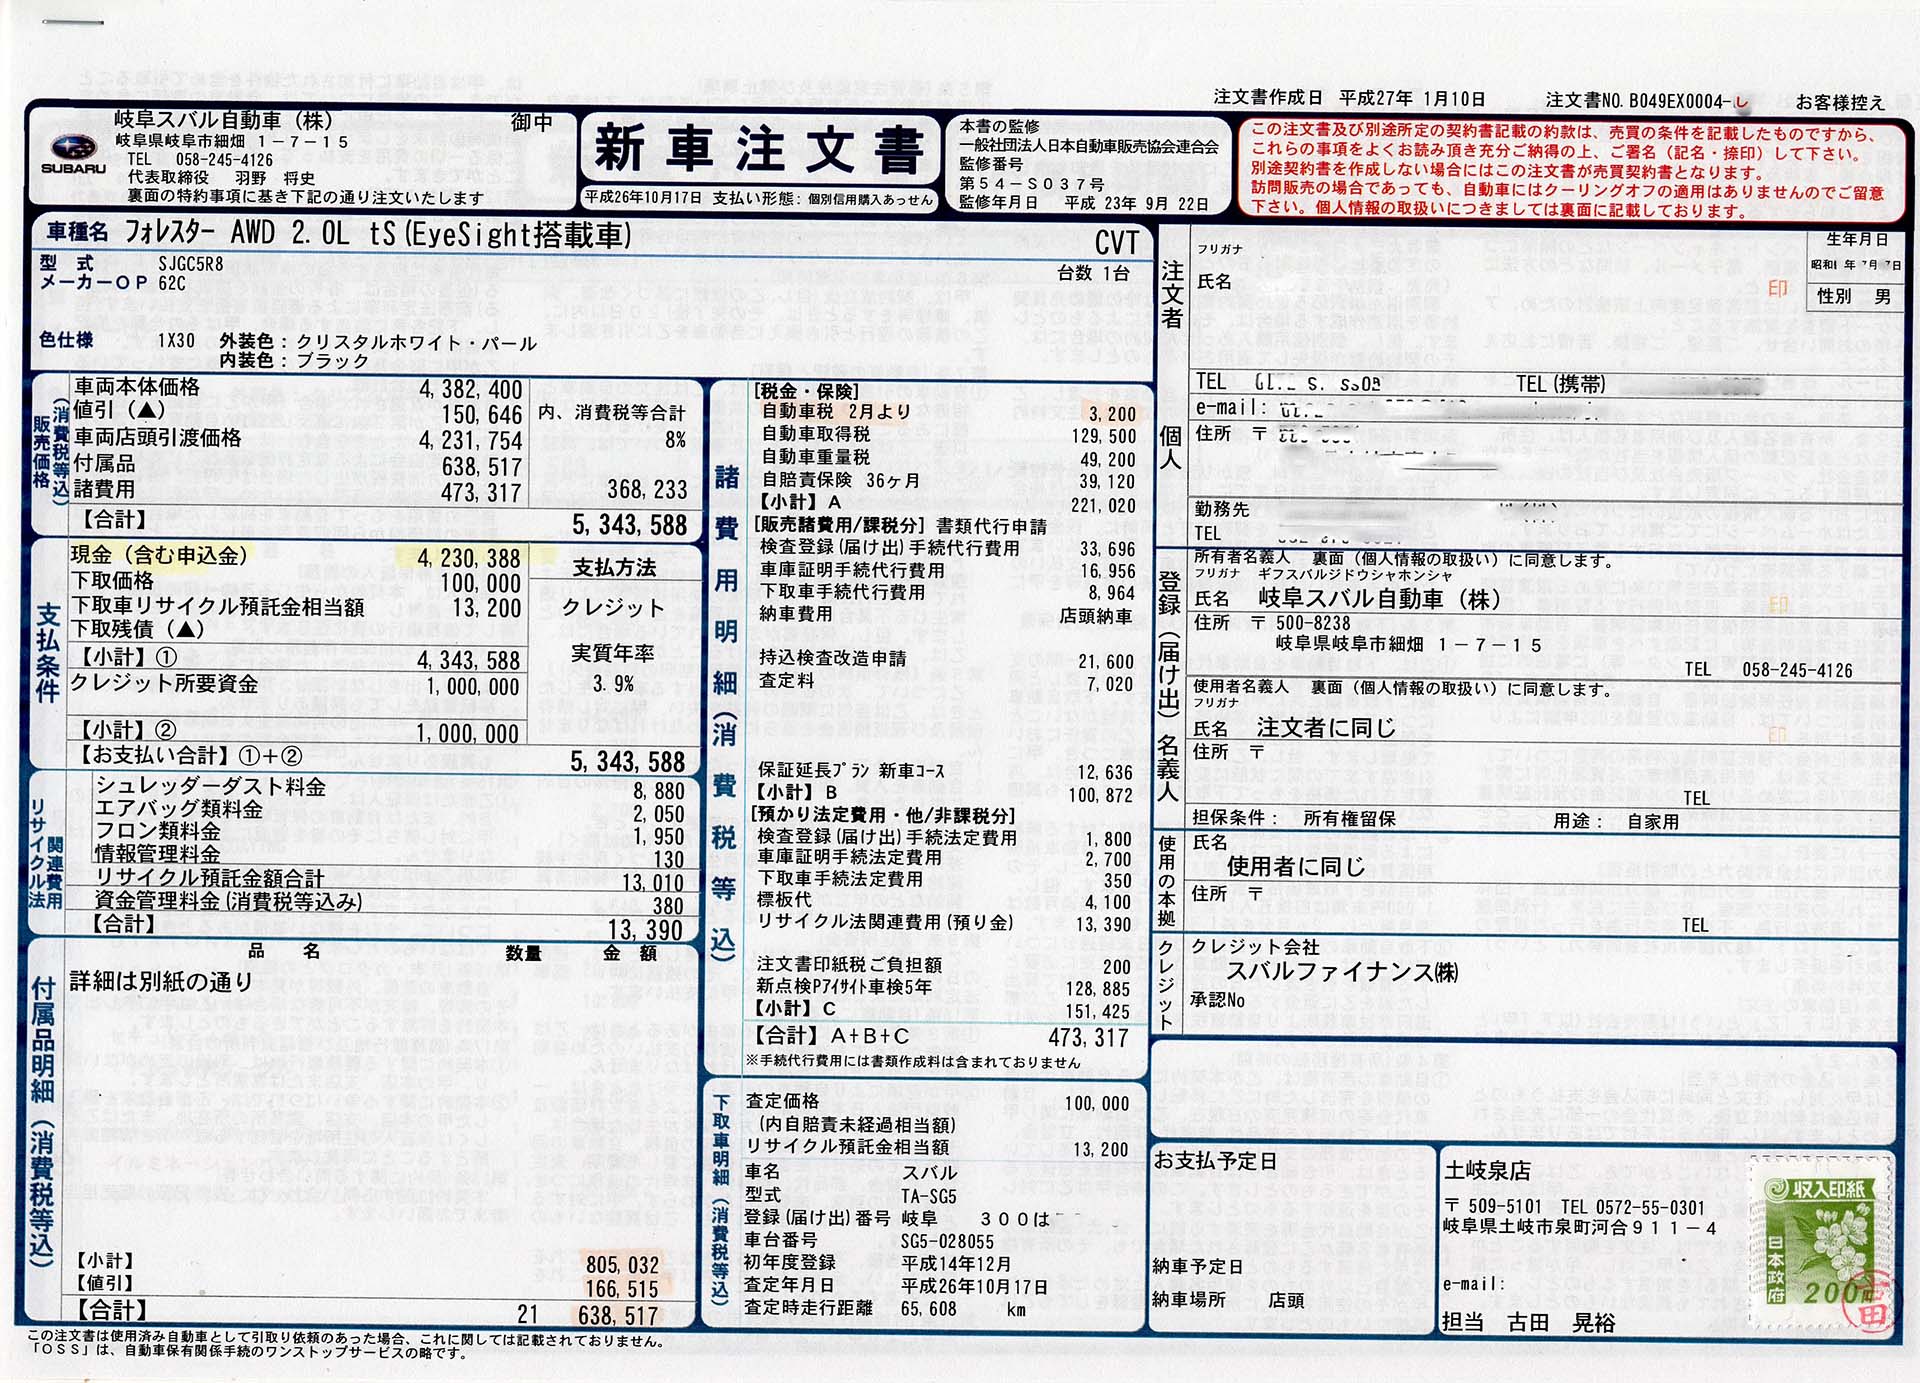 注文書作成日 平成27年 1月10日 注文書NO. B049EX0004- お客様控え
SUBARU
岐阜スバル自動車（株） 御中
岐阜県岐阜市細畑 1－7－15
TEL 058-245-4126
代表取締役 羽野 将史
裏面の特約事項に基き下記の通り注文いたします
新車注文書
平成26年10月17日 支払い形態：個別信用購入あっせん
本書の監修
一般社団法人日本自動車販売協会連合会
監修番号
第54－S037号
監修年月日 平成 23年 9月 22日
この注文書及び別途所定の契約書記載の約款は、売買の条件を記載したものですから、
これらの事項をよくお読み頂き充分ご納得の上、ご署名（記名・捺印）して下さい。
別途契約書を作成しない場合にはこの注文書が売買契約書となります。
訪問販売の場合であっても、自動車にはクーリングオフの適用はありませんのでご留意
下さい。個人情報の取扱いにつきましては裏面に記載しております。
車種名 フォレスター AWD 2.0L tS(EyeSight搭載車) CVT
型 式 SJGC5R8 台数 1台
メーカーOP 62C
色仕様 1X30 外装色：クリスタルホワイト・パール
内装色：ブラック
販売価格（消費税等込）
車両本体価格 4,382,400
値引（▲） 150,646 内、消費税等合計
車両店頭引渡価格 4,231,754 8%
付属品 638,517
諸費用 473,317 368,233
【合計】 5,343,588
支払条件
現金（含む申込金） 4,230,388 支払方法
下取価格 100,000
下取車リサイクル預託金相当額 13,200 クレジット
下取残債（▲）
【小計】① 4,343,588 実質年率
クレジット所要資金 1,000,000 3.9%
【小計】② 1,000,000
【お支払い合計】①＋② 5,343,588
リサイクル法関連費用
シュレッダーダスト料金 8,880
エアバッグ類料金 2,050
フロン類料金 1,950
情報管理料金 130
リサイクル預託金額合計 13,010
資金管理料金(消費税等込み) 380
【合計】 13,390
付属品明細（消費税等込）
品 名 数量 金 額
詳細は別紙の通り
【小計】 805,032
【値引】 166,515
【合計】 21 638,517
諸費用明細（消費税等込）
[税金・保険]
自動車税 2月より 3,200
自動車取得税 129,500
自動車重量税 49,200
自賠責保険 36ヶ月 39,120
【小計】A 221,020
[販売諸費用/課税分] 書類代行申請
検査登録(届け出)手続代行費用 33,696
車庫証明手続代行費用 16,956
下取車手続代行費用 8,964
納車費用 店頭納車
持込検査改造申請 21,600
査定料 7,020
保証延長プラン 新車コース 12,636
【小計】B 100,872
[預かり法定費用・他/非課税分]
検査登録(届け出)手続法定費用 1,800
車庫証明手続法定費用 2,700
下取車手続法定費用 350
標板代 4,100
リサイクル法関連費用(預り金) 13,390
注文書印紙税ご負担額 200
新点検Pアイサイト車検5年 128,885
【小計】C 151,425
【合計】A＋B＋C 473,317
※手続代行費用には書類作成料は含まれておりません
下取車明細（消費税等込）
査定価格 100,000
(内自賠責未経過相当額)
リサイクル預託金相当額 13,200
車名 スバル
型式 TA-SG5
登録(届け出)番号 岐阜 300は
車台番号 SG5-028055
初年度登録 平成14年12月
査定年月日 平成26年10月17日
査定時走行距離 65,608 km
注文者 個人
フリガナ 生年月日
氏名 印
性別 男
TEL TEL(携帯)
e-mail:
住所 〒
勤務先
TEL
登録（届け出）名義人
所有者名義人 裏面（個人情報の取扱い）に同意します。
フリガナ ギフスバルジドウシャホンシャ
氏名 岐阜スバル自動車（株） 印
住所 〒 500-8238
岐阜県岐阜市細畑 1－7－15
TEL 058-245-4126
使用者名義人 裏面（個人情報の取扱い）に同意します。
フリガナ
氏名 注文者に同じ 印
住所 〒
TEL
担保条件： 所有権留保 用途： 自家用
使用の本拠
氏名
使用者に同じ
住所 〒
TEL
クレジット
クレジット会社
スバルファイナンス㈱
承認No
お支払予定日
納車予定日
納車場所 店頭
土岐泉店
〒 509-5101 TEL 0572-55-0301
岐阜県土岐市泉町河合911－4
e-mail:
担当 古田 晃裕
収入印紙
日本政府
200円
この注文書は使用済み自動車として引取り依頼のあった場合、これに関しては記載されておりません。
「OSS」は、自動車保有関係手続のワンストップサービスの略です。